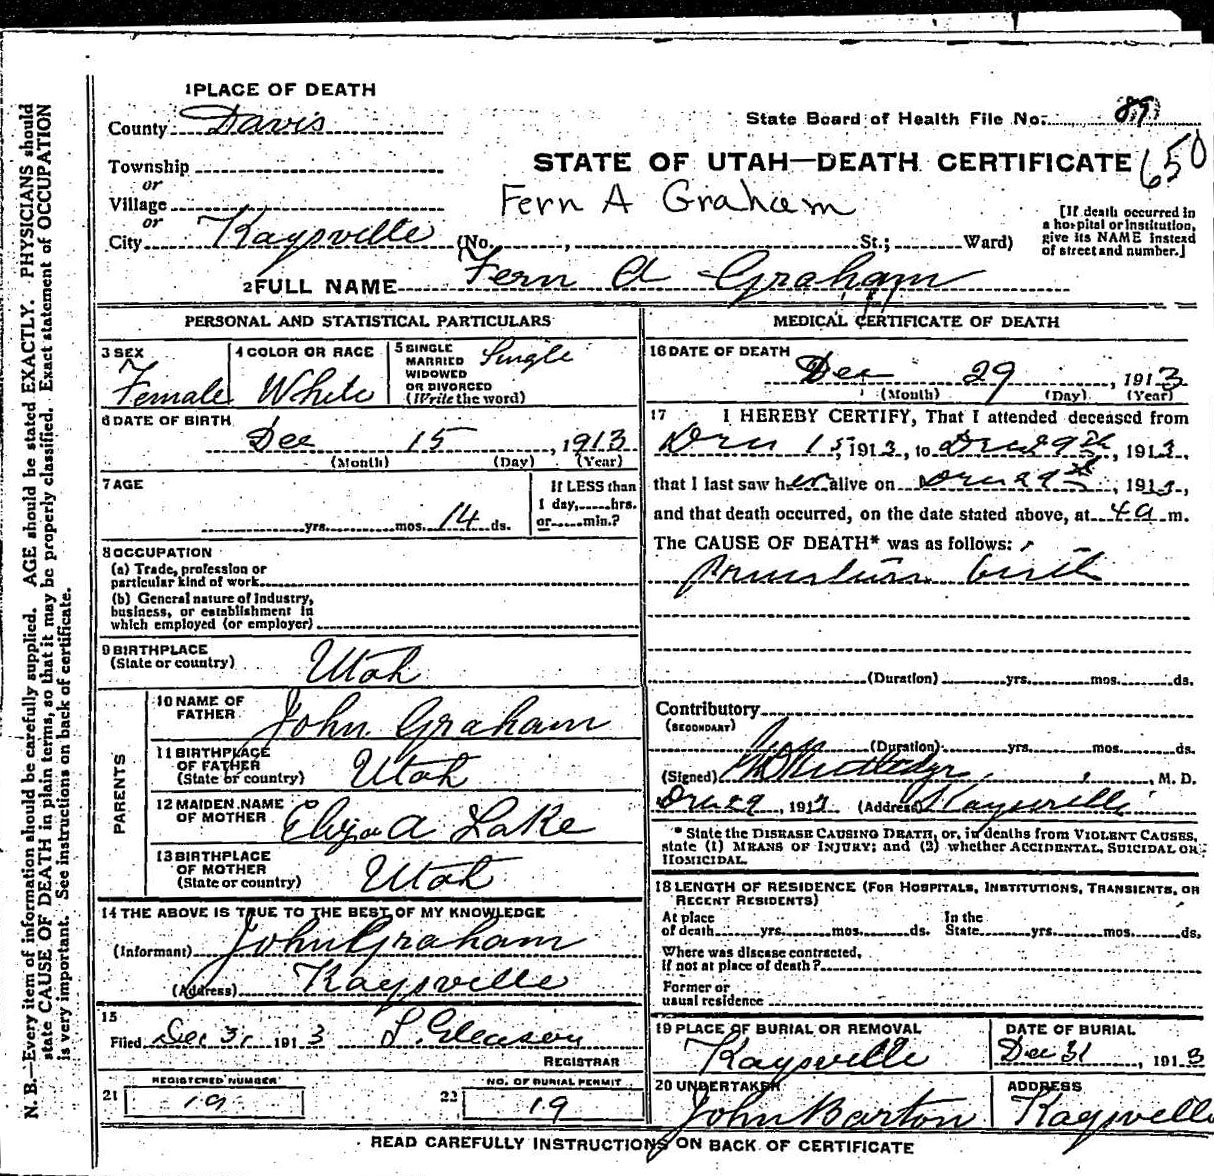 1 PLACE OF DEATH
County Davis
State Board of Health File No. 89
Township
or
Village
or
City Kaysville
STATE OF UTAH—DEATH CERTIFICATE 650
Fern A Graham
(No. , St.; Ward)
[If death occurred in
a hospital or institution,
give its NAME instead
of street and number.]
2 FULL NAME Fern A Graham
PERSONAL AND STATISTICAL PARTICULARS
3 SEX
Female
4 COLOR OR RACE
White
5 SINGLE
MARRIED
WIDOWED
OR DIVORCED
(Write the word)
Single
6 DATE OF BIRTH
Dec 15, 1913
(Month) (Day) (Year)
7 AGE
yrs. mos. 14 ds.
If LESS than
1 day, hrs.
or min.?
8 OCCUPATION
(a) Trade, profession or
particular kind of work
(b) General nature of Industry,
business, or establishment in
which employed (or employer)
9 BIRTHPLACE
(State or country)
Utah
PARENTS
10 NAME OF
FATHER
John Graham
11 BIRTHPLACE
OF FATHER
(State or country)
Utah
12 MAIDEN NAME
OF MOTHER
Eliza A Lake
13 BIRTHPLACE
OF MOTHER
(State or country)
Utah
14 THE ABOVE IS TRUE TO THE BEST OF MY KNOWLEDGE
(Informant) John Graham
(Address) Kaysville
15
Filed Dec 31 1913 S. Gleason
REGISTRAR
REGISTERED NUMBER
21 19
NO. OF BURIAL PERMIT
22 19
MEDICAL CERTIFICATE OF DEATH
16 DATE OF DEATH
Dec 29, 1913
(Month) (Day) (Year)
17 I HEREBY CERTIFY, That I attended deceased from
Dec 15, 1913, to Dec 29th, 1913,
that I last saw her alive on Dec 29th, 1913,
and that death occurred, on the date stated above, at 4a m.
The CAUSE OF DEATH* was as follows:
premature birth
(Duration) yrs. mos. ds.
Contributory
(SECONDARY)
(Duration) yrs. mos. ds.
(Signed) , M. D.
Dec 29, 1913 (Address) Kaysville
* State the DISEASE CAUSING DEATH, or, in deaths from VIOLENT CAUSES,
state (1) MEANS OF INJURY; and (2) whether ACCIDENTAL, SUICIDAL OR
HOMICIDAL.
18 LENGTH OF RESIDENCE (FOR HOSPITALS, INSTITUTIONS, TRANSIENTS, OR
RECENT RESIDENTS)
At place
of death yrs. mos. ds.
In the
State yrs. mos. ds.
Where was disease contracted,
if not at place of death?
Former or
usual residence
19 PLACE OF BURIAL OR REMOVAL
Kaysville
DATE OF BURIAL
Dec 31, 1913
20 UNDERTAKER
John Barton
ADDRESS
Kaysville
READ CAREFULLY INSTRUCTIONS ON BACK OF CERTIFICATE
N. B.—Every item of information should be carefully supplied. AGE should be stated EXACTLY. PHYSICIANS should
state CAUSE OF DEATH in plain terms, so that it may be properly classified. Exact statement of OCCUPATION
is very important. See instructions on back of certificate.